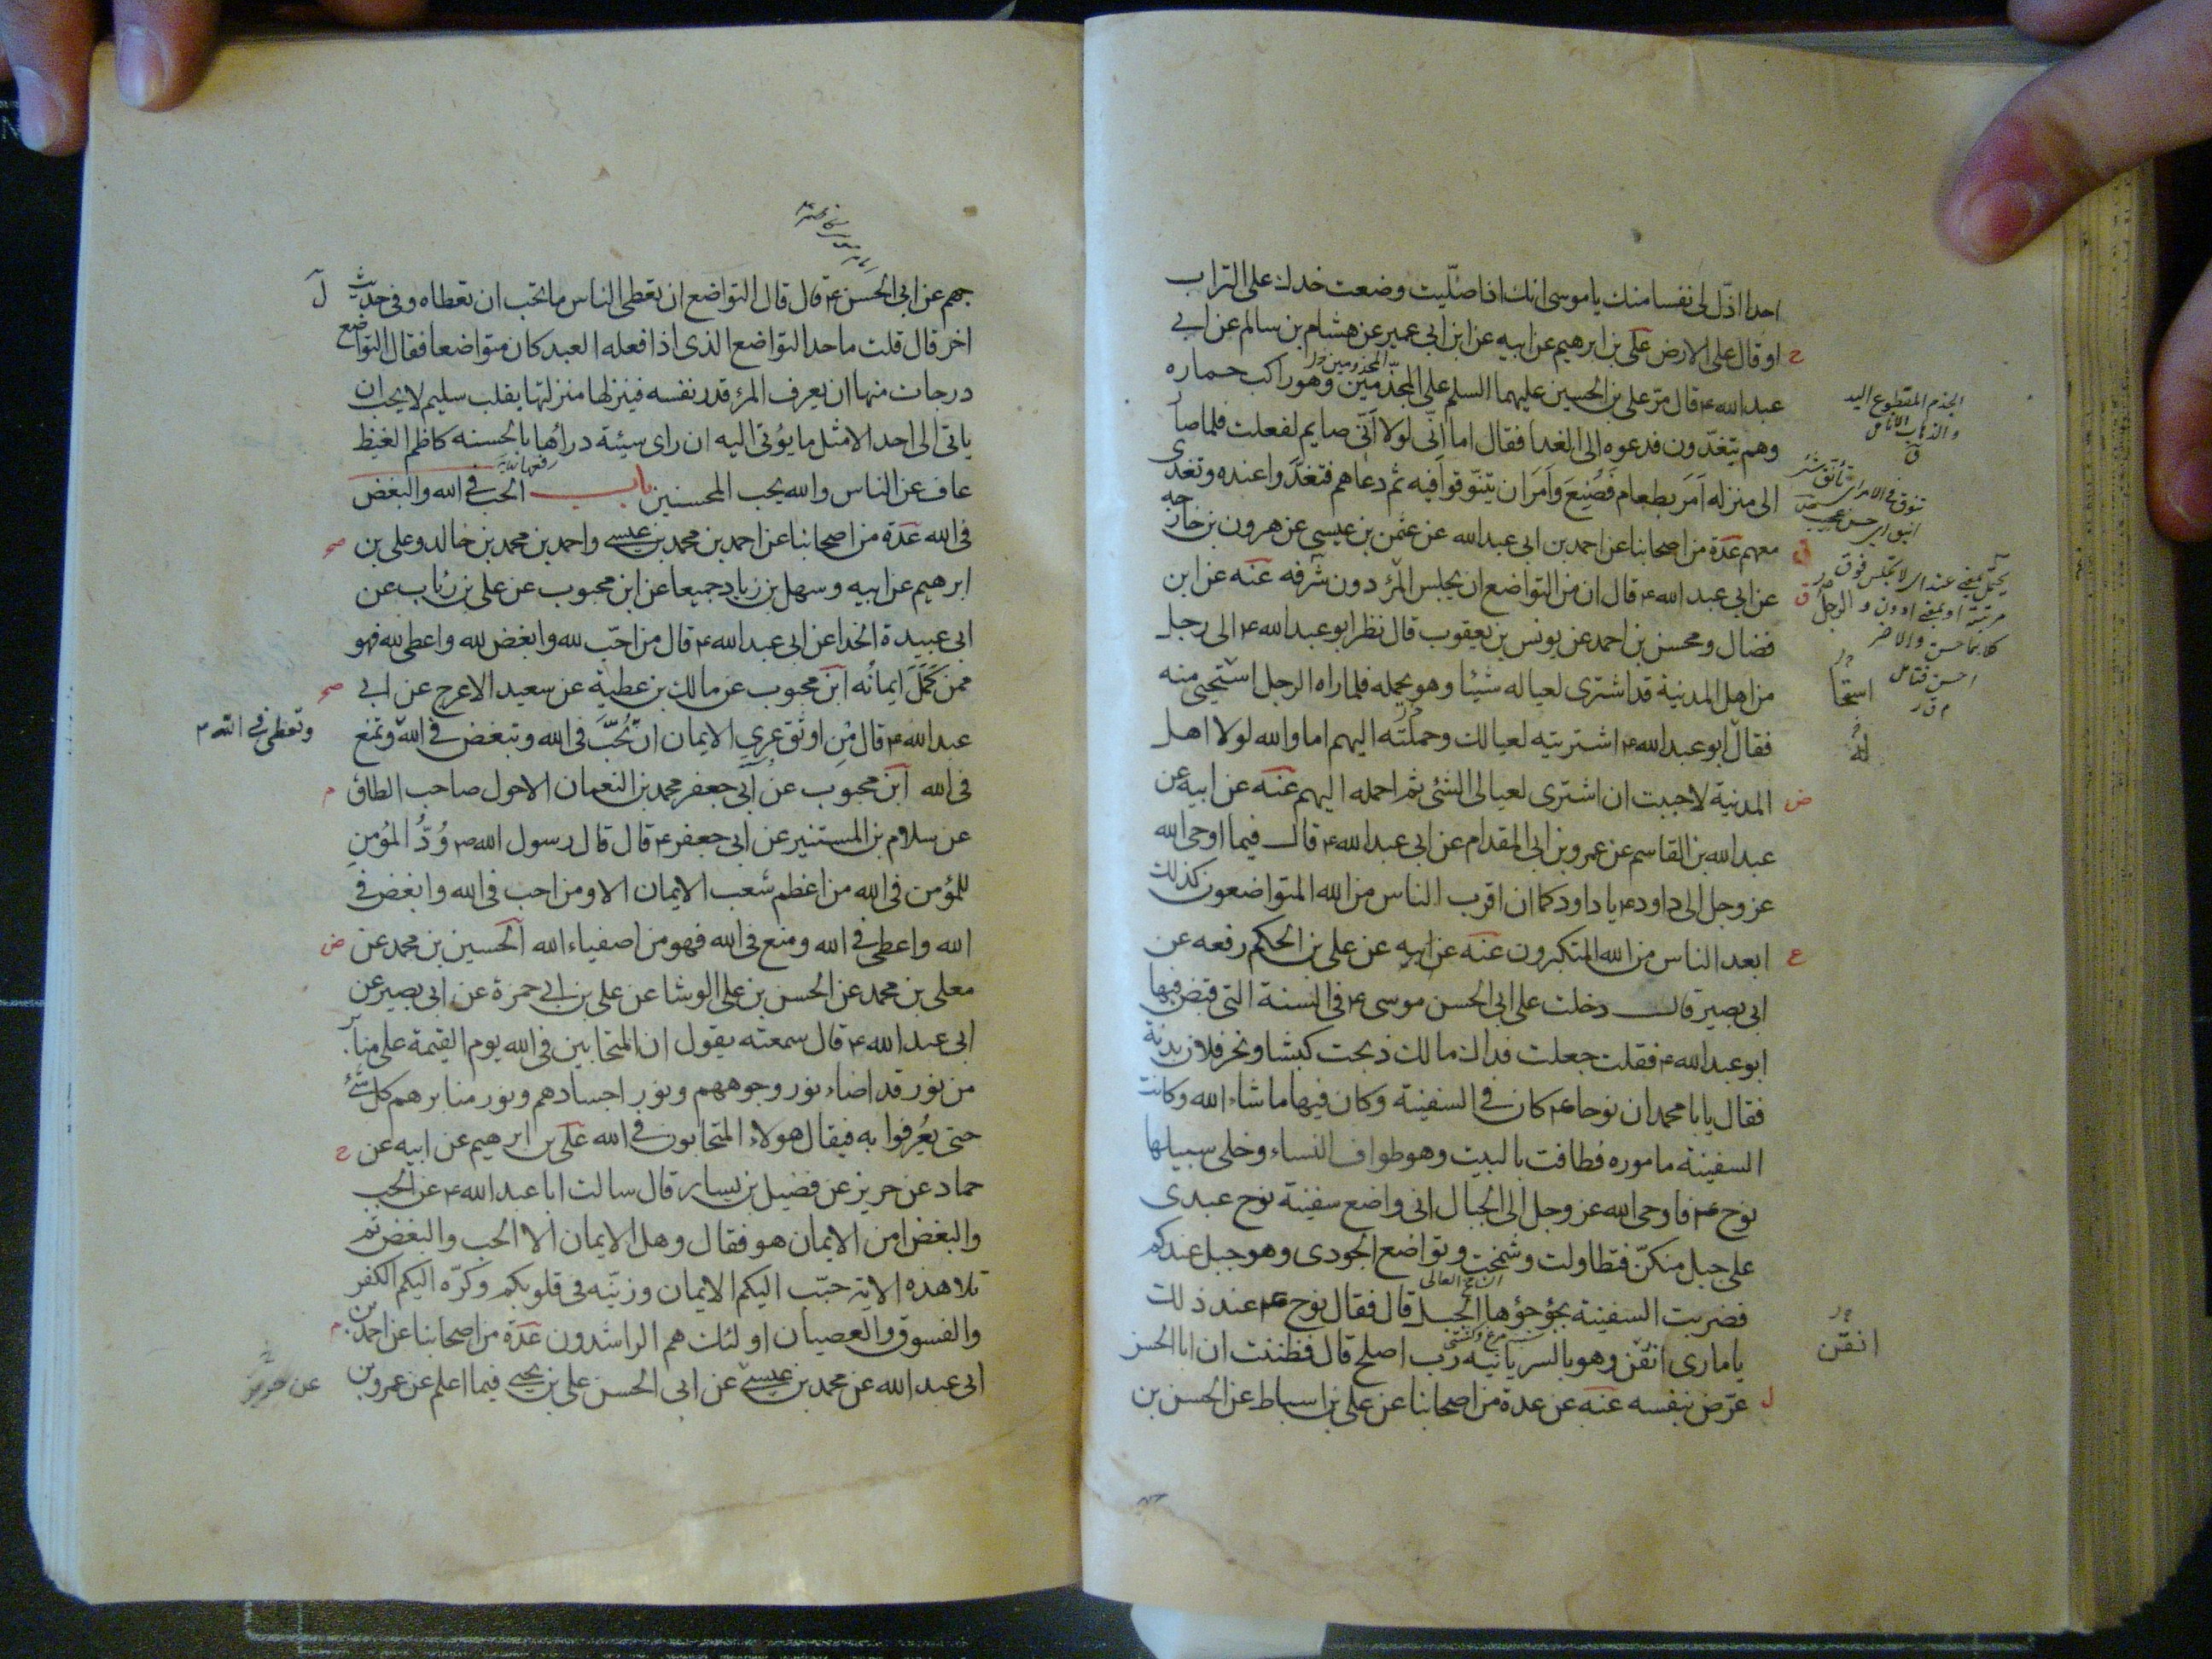 احدا اذل لى نفسا منك يا موسى انك اذا صلّيت وضعت خدك على التراب
او قال على الارض على بن ابرهيم عن ابيه عن ابن ابى عمير عن هشام بن سالم عن ابى
عبد الله ع قال مرّ على بن الحسين عليهما السلم على المجذّمين وهو راكب حماره
وهم يتغدّون فدعوه الى الغدا فقال اما انّى لولا انّى صايم لفعلت فلما صار
الى منزله اَمَرَ بطعام فَصُنِعَ واَمَرَ ان يتنوّقوا فيه ثم دعاهم فتغدَّوا عنده وتغدى
معهم عدة من اصحابنا عن احمد بن ابى عبد الله عن عثمن بن عيسى عن هرون بن خارجه
عن ابى عبد الله ع قال ان من التواضع ان يجلس المرؤ دون شرفه عنه عن ابن
فضال ومحسن بن احمد عن يونس بن يعقوب قال نظر ابو عبد الله ع الى رجل
من اهل المدينة قد اشترى لعياله شيئا وهو يحمله فلما راه الرجل استحيى منه
فقال ابو عبد الله ع اشتريته لعيالك وحملته اليهم اما والله لولا اهل
المدينة لاحببت ان اشترى لعيالى الشئ ثم احمله اليهم عنه عن ابيه عن
عبد الله بن القاسم عن عمرو بن ابى المقدام عن ابى عبد الله ع قال فيما اوحى الله
عز وجل الى داود ع يا داود كما ان اقرب الناس من الله المتواضعون كذلك
ابعد الناس من الله المتكبرون عنه عن ابيه عن على بن الحكم رفعه عن
ابى بصير قال دخلت على ابى الحسن موسى ع فى السنة التى قبض فيها
ابو عبد الله ع فقلت جعلت فداك مالك ذبحت كبشا ونحر فلان بدنة
فقال يا با محمد ان نوحا ع كان فى السفينة وكان فيها ما شاء الله وكانت
السفينة ماموره فطافت بالبيت وهو طواف النساء وخلى سبيلها
نوح ع فاوحى الله عز وجل الى الجبال انى واضع سفينة نوح عبدى
على جبل منكنّ فتطاولت وشمخت وتواضع الجودى وهو جبل عندكم
فضربت السفينة بجؤجؤها الجبل قال فقال نوح ع عند ذلك
يا مارى اتقن وهو بالسريانيه رب اصلح قال فظننت ان ابا الحسن
عرّض بنفسه عنه عن عدة من اصحابنا عن على بن اسباط عن الحسن بن
المجذومين
الجذم المقطوع اليد
جهم عن ابى الحسن ع قال قال التواضع ان تعطى الناس ما تحب ان تعطاه وفى حديث
اخر قال قلت ما حد التواضع الذى اذا فعله العبد كان متواضعا فقال التواضع
درجات منها ان يعرف المرؤ قدر نفسه فينزلها منزلتها بقلب سليم لا يحب ان
ياتى الى احد الا مثل ما يؤتى اليه ان راى سيئة دراها بالحسنه كاظم الغيظ
عاف عن الناس والله يحب المحسنين باب الحب فى الله والبغض
فى الله عدة من اصحابنا عن احمد بن محمد بن عيسى واحمد بن محمد بن خالد وعلى بن
ابرهيم عن ابيه وسهل بن زياد جميعا عن ابن محبوب عن على بن رئاب عن
ابى عبيدة الحذا عن ابى عبد الله ع قال من احبّ لله وابغض لله واعطى لله فهو
ممن كَمَلَ ايمانُه ابن محبوب عن مالك بن عطية عن سعيد الاعرج عن ابى
عبد الله ع قال مِن اوثق عرى الايمان ان تُحبَّ فى الله وتبغض فى الله وتمنع
وتعطى فى الله
فى الله ابن محبوب عن ابى جعفر محمد بن النعمان الاحول صاحب الطاق
عن سلام بن المستنير عن ابى جعفر ع قال قال رسول الله ص وُدُّ المؤمنِ
للمؤمن فى الله من اعظم شعب الايمان الا ومن احب فى الله وابغض فى
الله واعطى فى الله ومنع فى الله فهو من اصفياء الله الحسين بن محمد عن
معلى بن محمد عن الحسن بن على الوشا عن على بن ابى حمزة عن ابى بصير عن
ابى عبد الله ع قال سمعته يقول ان المتحابين فى الله يوم القيمة على منابر
من نور قد اضاء نور وجوههم ونور اجسادهم ونور منابرهم كل شئ
حتى يُعرفوا به فيقال هولاء المتحابون فى الله على بن ابرهيم عن ابيه عن
حماد عن حريز عن فضيل بن يسار قال سالت ابا عبد الله ع عن الحب
والبغض امن الايمان هو فقال وهل الايمان الا الحب والبغض ثم
تلا هذه الاية حبّب اليكم الايمان وزيّنه فى قلوبكم وكرّه اليكم الكفر
والفسوق والعصيان اولئك هم الراشدون عدة من اصحابنا عن احمد بن
ابى عبد الله عن محمد بن عيسى عن ابى الحسن على بن يحيى فيما اعلم عن عمرو بن